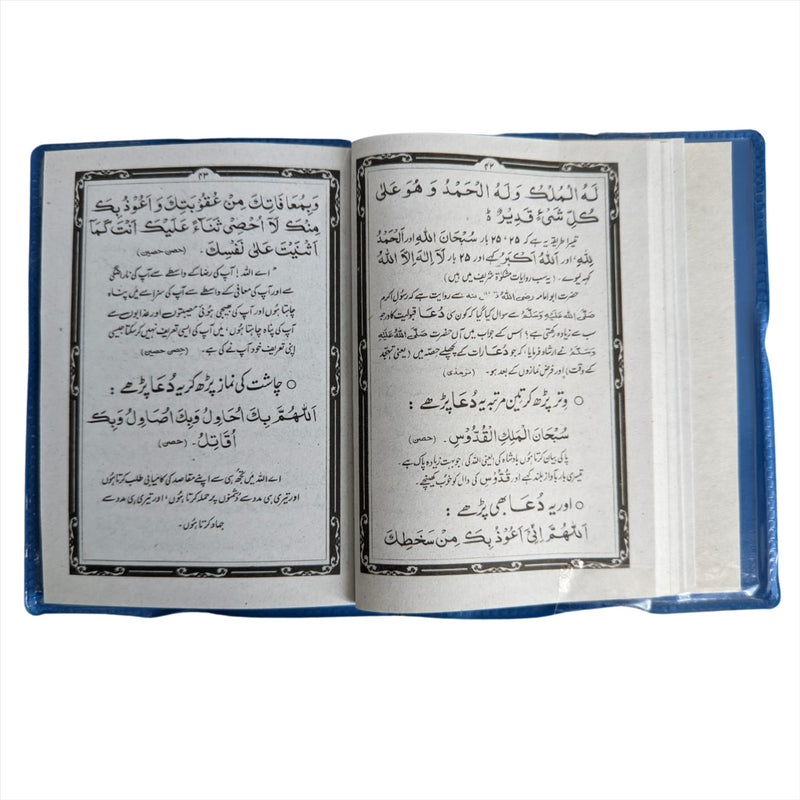 ۴۲
لَهُ الْمُلْكُ وَلَهُ الْحَمْدُ وَ هُوَ عَلٰى
كُلِّ شَیْءٍ قَدِیْرٌ ط
تیسرا طریقہ یہ ہے کہ ۲۵، ۲۵ بار سُبْحَانَ اللهِ اور اَلْحَمْدُ
لِلّٰهِ اور اَللهُ اَكْبَرُ کہے اور ۲۵ بار لَآ اِلٰهَ اِلَّا اللهُ
کہہ لیوے۔ (یہ سب روایات مشکوٰۃ شریف میں ہیں)
حضرت ابو امامہ رضی اللہ عنہ سے روایت ہے کہ رسول اکرم
صَلَّی اللهُ عَلَیْهِ وَسَلَّمَ سے سوال کیا گیا کہ کون سی دُعَا قبولیت کے درجہ
سب سے زیادہ رکھتی ہے؟ اس کے جواب میں آں حضرت صَلَّی اللهُ عَلَیْهِ
وَسَلَّمَ نے ارشاد فرمایا کہ جو دُعَا رات کے پچھلے حصّہ میں (یعنی تہجد
کے وقت) اور فرض نمازوں کے بعد ہو۔ (ترمذی)
○ وتر پڑھ کر تین مرتبہ یہ دُعَا پڑھے :
سُبْحَانَ الْمَلِكِ الْقُدُّوْسِ۔ (حصن)
پاکی بیان کرتا ہوں بادشاہ کی (یعنی اللہ کی) جو بہت زیادہ پاک ہے۔
تیسری بار با آواز بلند کہے اور قُدُّوْسِ کی دال کو خوب کھینچے۔
○ اور یہ دُعَا بھی پڑھے :
اَللّٰهُمَّ اِنِّیْ اَعُوْذُ بِكَ مِنْ سَخَطِكَ
۴۳
وَبِمُعَافَاتِكَ مِنْ عُقُوْبَتِكَ وَ اَعُوْذُ بِكَ
مِنْكَ لَآ اُحْصِیْ ثَنَاءً عَلَیْكَ اَنْتَ كَمَآ
اَثْنَیْتَ عَلٰى نَفْسِكَ۔ (حصن حصین)
اے اللہ! آپ کی رضا کے واسطے سے آپ کی ناراضگی
سے اور آپ کی معافی کے واسطے سے آپ کی سزا سے میں پناہ
چاہتا ہوں اور آپ کی بھیجی ہوئی مصیبتوں اور عذابوں سے
آپ کی پناہ چاہتا ہوں، میں آپ کی ایسی تعریف نہیں کر سکتا جیسی
اپنی تعریف خود آپ نے کی ہے۔ (حصن حصین)
○ چاشت کی نماز پڑھ کر یہ دُعا پڑھے :
اَللّٰهُمَّ بِكَ اُحَاوِلُ وَبِكَ اُصَاوِلُ وَبِكَ
اُقَاتِلُ۔ (حصن)
اے اللہ میں تجھ ہی سے اپنے مقاصد کی کامیابی طلب کرتا ہوں
اور تیری ہی مدد سے دُشمنوں پر حملہ کرتا ہوں، اور تیری ہی مدد سے
جہاد کرتا ہوں۔